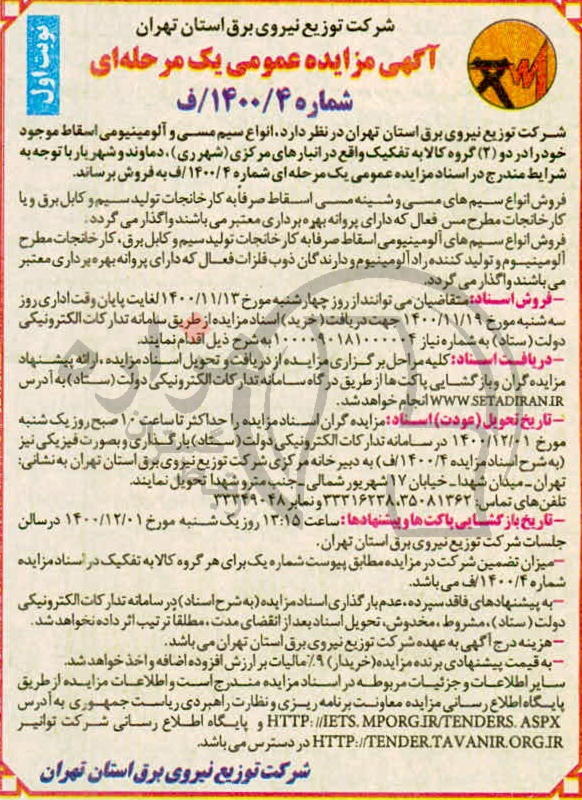 شرکت توزیع نیروی برق استان تهران
آگهی مزایده عمومی یک مرحله‌ای
شماره ۱۴۰۰/۴/ف
نوبت اول
شرکت توزیع نیروی برق استان تهران در نظر دارد، انواع سیم مسی و آلومینیومی اسقاط موجود
خود را در دو (۲) گروه کالا به تفکیک واقع در انبارهای مرکزی (شهرری)، دماوند و شهریار با توجه به
شرایط مندرج در اسناد مزایده عمومی یک مرحله‌ای شماره ۱۴۰۰/۴/ف به فروش برساند.
فروش انواع سیم های مسی و شینه مسی اسقاط صرفاً به کارخانجات تولید سیم و کابل برق و یا
کارخانجات مطرح مس فعال که دارای پروانه بهره برداری معتبر می باشند واگذار می گردد.
فروش انواع سیم های آلومینیومی اسقاط صرفا به کارخانجات تولید سیم و کابل برق، کارخانجات مطرح
آلومینیوم و تولید کننده راد آلومینیوم و دارندگان ذوب فلزات فعال که دارای پروانه بهره برداری معتبر
می باشند واگذار می گردد.
–فروش اسناد: متقاضیان می توانند از روز چهارشنبه مورخ ۱۴۰۰/۱۱/۱۳ لغایت پایان وقت اداری روز
سه شنبه مورخ ۱۴۰۰/۱۱/۱۹ جهت دریافت (خرید) اسناد مزایده از طریق سامانه تدارکات الکترونیکی
دولت (ستاد) به شماره نیاز ۱۰۰۰۰۹۰۱۸۱۰۰۰۰۰۴ به شرح ذیل اقدام نمایند.
–دریافت اسناد: کلیه مراحل برگزاری مزایده از دریافت و تحویل اسناد مزایده، ارائه پیشنهاد
مزایده گران و بازگشایی پاکت ها از طریق درگاه سامانه تدارکات الکترونیکی دولت (ستاد) به آدرس
WWW.SETADIRAN.IR انجام خواهد شد.
–تاریخ تحویل (عودت) اسناد: مزایده گران اسناد مزایده را حداکثر تا ساعت ۱۰ صبح روز یک شنبه
مورخ ۱۴۰۰/۱۲/۰۱ در سامانه تدارکات الکترونیکی دولت (ستاد) بارگذاری و بصورت فیزیکی نیز
(به شرح اسناد مزایده ۱۴۰۰/۴/ف) به دبیرخانه مرکزی شرکت توزیع نیروی برق استان تهران به نشانی:
تهران – میدان شهدا – خیابان ۱۷ شهریور شمالی – جنب مترو شهدا تحویل نمایند.
تلفن های تماس: ۳۵۰۸۱۳۶۲، ۳۳۳۱۶۲۳۸ و نمابر ۳۳۳۴۹۰۴۸
–تاریخ بازگشایی پاکت ها و پیشنهادها: ساعت ۱۳:۱۵ روز یک شنبه مورخ ۱۴۰۰/۱۲/۰۱ در سالن
جلسات شرکت توزیع نیروی برق استان تهران.
–میزان تضمین شرکت در مزایده مطابق پیوست شماره یک برای هر گروه کالا به تفکیک در اسناد مزایده
شماره ۱۴۰۰/۴/ف می باشد.
–به پیشنهادهای فاقد سپرده، عدم بارگذاری اسناد مزایده (به شرح اسناد) در سامانه تدارکات الکترونیکی
دولت (ستاد)، مشروط، مخدوش، تحویل اسناد بعد از انقضای مدت، مطلقا ترتیب اثر داده نخواهد شد.
–هزینه درج آگهی به عهده شرکت توزیع نیروی برق استان تهران می باشد.
–به قیمت پیشنهادی برنده مزایده (خریدار) ۹٪ مالیات بر ارزش افزوده اضافه و اخذ خواهد شد.
سایر اطلاعات و جزئیات مربوطه در اسناد مزایده مندرج است و اطلاعات مزایده از طریق
پایگاه اطلاع رسانی مزایده معاونت برنامه ریزی و نظارت راهبردی ریاست جمهوری به آدرس
HTTP://IETS.MPORG.IR/TENDERS.ASPX و پایگاه اطلاع رسانی شرکت توانیر
HTTP://TENDER.TAVANIR.ORG.IR در دسترس می باشد.
شرکت توزیع نیروی برق استان تهران